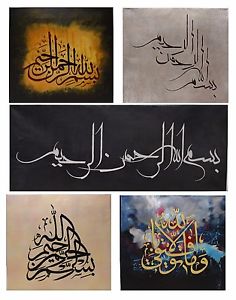 بسم الله الرحمن الرحيم
بسم الله الرحمن الرحيم
بسم الله الرحمن الرحيم
بسم الله الرحمن الرحيم
وما توفيقي إلا بالله